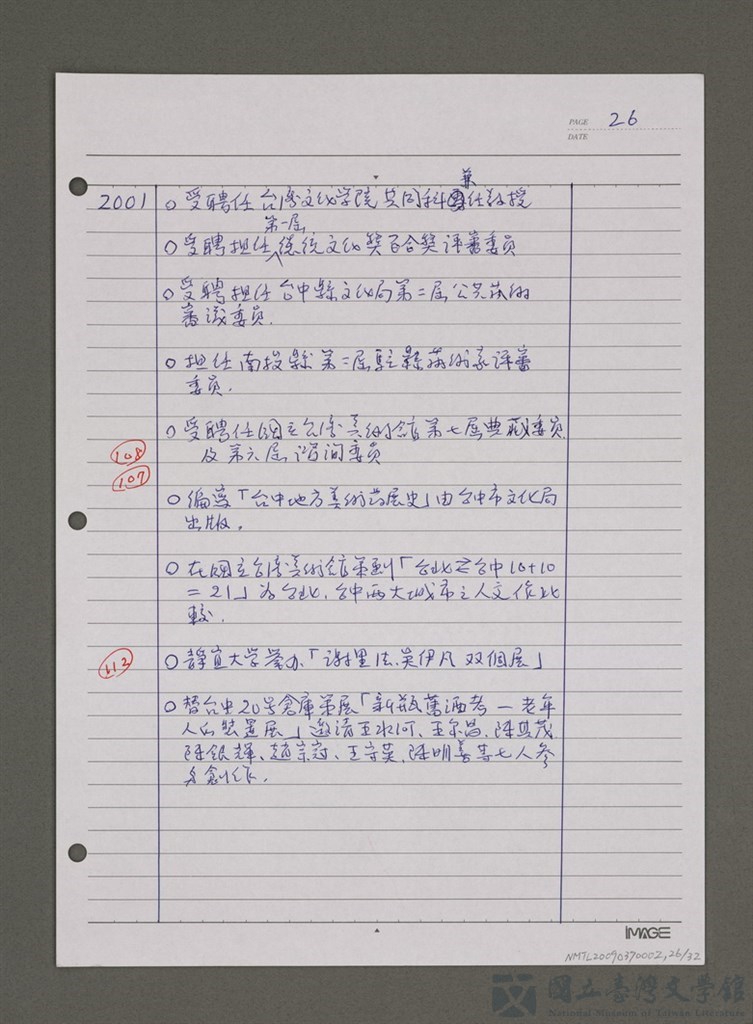 PAGE 26
DATE
兼
2001 ○受聘任台湾文化学院共同科任教授
第一屆
○受聘担任總統文化獎百合獎评審委員
○受聘担任台中縣文化局第二屆公共藝術
審議委員.
○担任南投縣第二屆駐縣藝術家评審
委員.
○受聘任国立台湾美術館第七屆典藏委員
108
及第六屆諮询委員
107
○編選「台中地方美術發展史」由台中市文化局
出版。
○在国立台湾美術館策劃「台北≥台中10+10
=21」为台北、台中两大城市之人文作比
較.
112 ○静宜大学举办「谢里法、吴伊凡双個展」
○替台中20号倉庫策展「新瓶舊酒考—老年
人的裝置展」邀请王水河、王尔昌、陳其茂、
陳銀輝、趙宗冠、王守英、陳明善等七人參
与創作.
IMAGE
NMTL20090370002,26/32
國立臺灣文學館
National Museum of Taiwan Literature